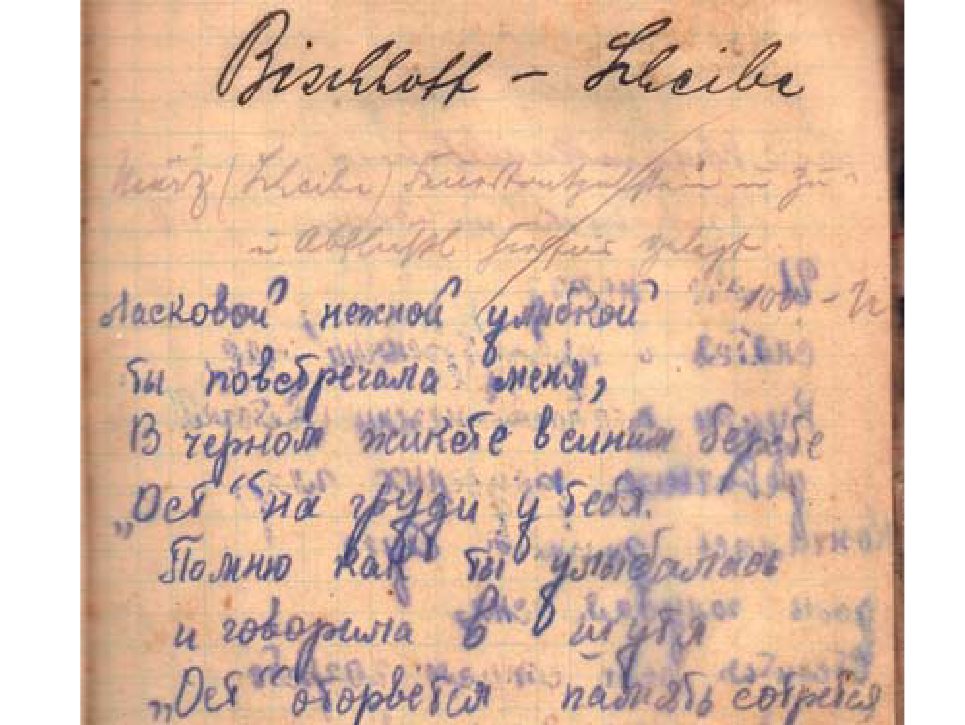 Bischhoff - Scheibe
März (Scheibe)
100.-
Ласковой нежной улыбкой
ты повстречала меня,
В черном жикете в синим берете
„Ост“ на груди у тебя.
Помню как ты улыбалась
и говорила в шутя
„Ост“ оторвётся память сотрётся